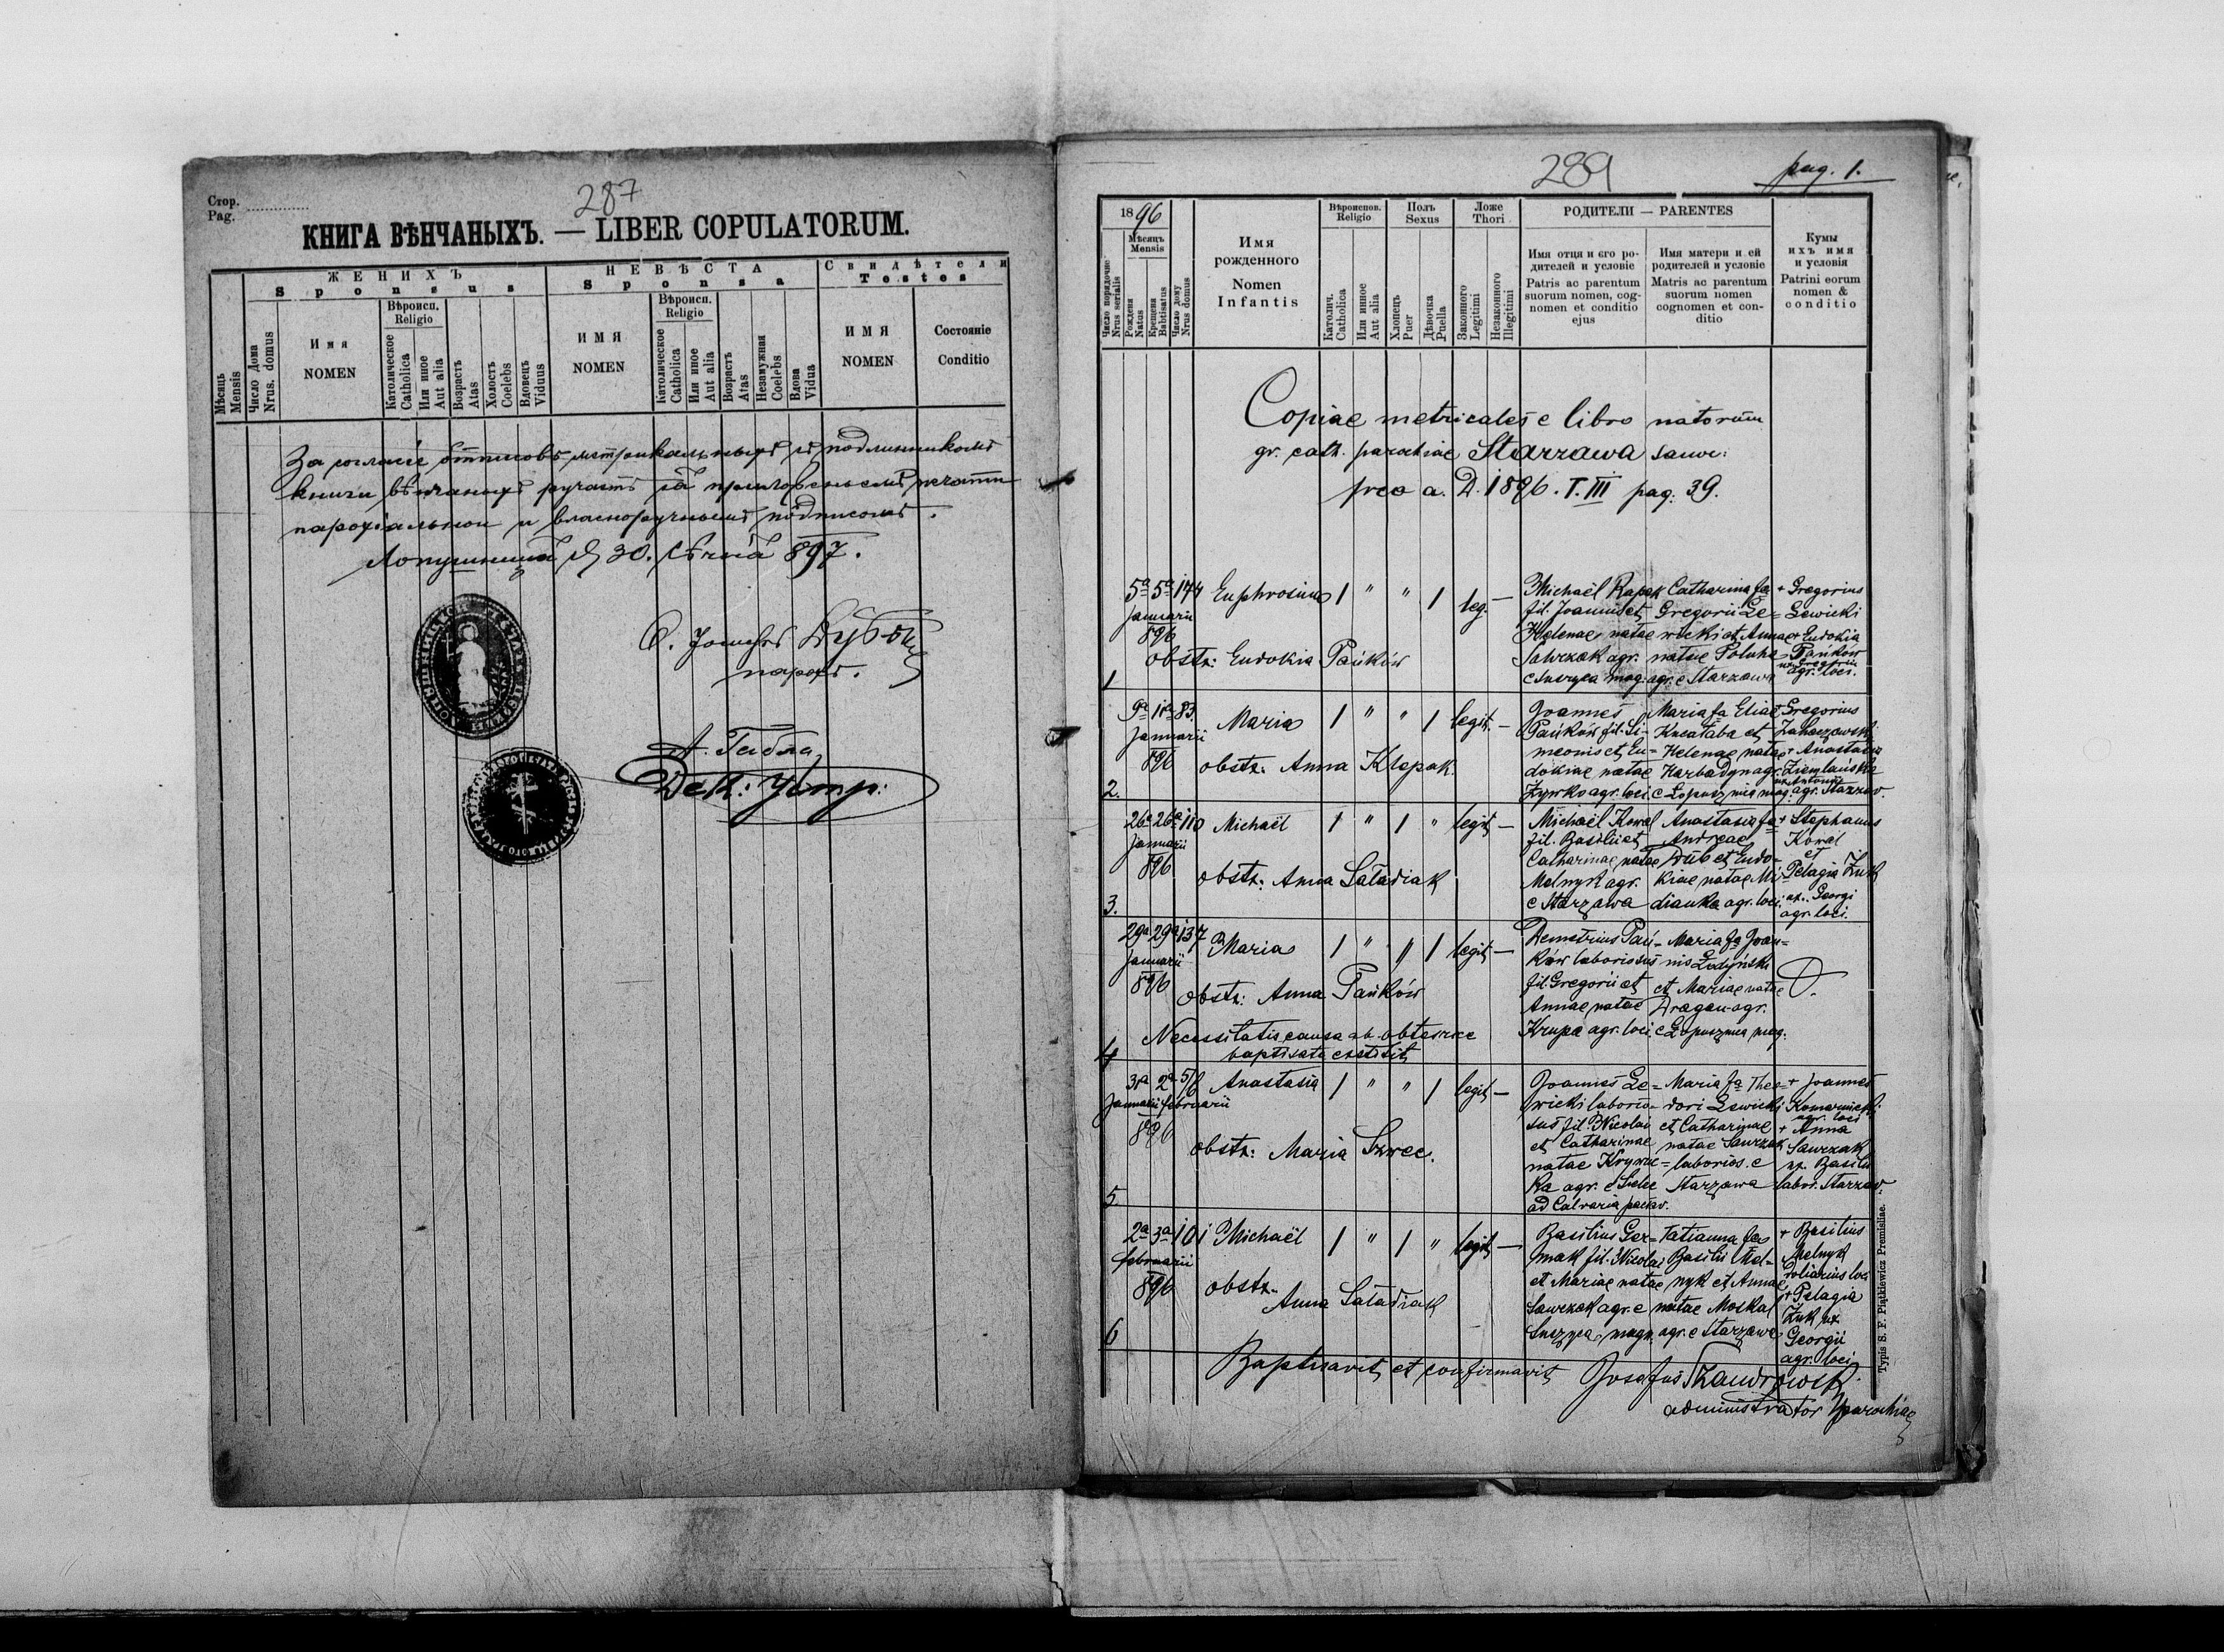 287
Стор.
Pag.
КНИГА ВѢНЧАНЫХЪ. — LIBER COPULATORUM.
ЖЕНИХЪ
Sponsus
НЕВѢСТА
Sponsa
Свидѣтели
Testes
Мѣсяць
Mensis
Число Дома
Nrus. domus
Имя
NOMEN
Вѣроисп.
Religio
Католическое
Catholica
Или иное
Aut alia
Возрастъ
Atas
Холостъ
Coelebs
Вдовець
Viduus
ИМЯ
NOMEN
Вѣроисп.
Religio
Католическое
Catholica
Или иное
Aut alia
Возрастъ
Atas
Незамужная
Coelebs
Вдова
Vidua
ИМЯ
NOMEN
Состояніе
Conditio
За согласіе отписовъ метрикальныхъ съ подлинникомъ
книги вѣнчаныхъ ручатъ за приложеньемъ печати
парохіальнои и власноручнымъ подписомъ.
Лопушница д. 30. Сѣчня 897.
О. Іосифъ
парохъ.
Дек: Устр:
289
pag. 1.
1896
Мѣсяць
Mensis
Число порядочне
Nrus serialis
Рожденя
Natus
Крещеня
Babtisatus
Число дому
Nrus domus
Имя
рожденного
Nomen
Infantis
Вѣроиспов.
Religio
Католич.
Catholica
Или иное
Aut alia
Полъ
Sexus
Хлопець
Puer
Дѣвочка
Puella
Ложе
Thori
Законного
Legitimi
Незаконного
Illegitimi
РОДИТЕЛИ — PARENTES
Имя отця и єго ро-
дителей и условіє
Patris ac parentum
suorum nomen, cog-
nomen et conditio
ejus
Имя матери и ей
родителей и условіє
Matris ac parentum
suorum nomen
cognomen et con-
ditio
Кумы
ихъ имя
и условія
Patrini eorum
nomen &
conditio
Copiae metricales e libro natorum
gr. cath. parochiae Starzawa
pro a. D. 1896. T. III pag. 39.
5a 5a 174 Euphrosina 1 " " 1 leg. —
Januarii
896
obstr: Eudokia Pańków
1
Michaël Rapak
fil. Joannis et
Helenae natae
Sawczak agr.
e Suszyca mag.
Catharina fa
Gregorii Le=
wicki et Annae
natae Poluha
agr. e Starzawa
+ Gregorius
Lewicki
+ Eudokia
Pańków
ux. Gregorii
agr. loci.
9a 11a 83. Maria 1 " " 1 legit. —
Januarii
896
obstr. Anna Klepak.
2.
Joannes
Pańków fil. Si=
meonis et Eu=
dokiae natae
Żywko agr. loci.
Maria fa Eliae
et
Helenae natae
agr.
e Łopusznica mag.
Gregorius
+ Anastasia
Ziemlańska
ux. Antonii
agr. Starzaw.
26a 26a 110 Michaël 1 " 1 " legit —
Januarii
896
obstr. Anna Saładiak
3.
Michaël Kowal
fil. Basilii et
Catharinae natae
Melnyk agr.
e Starzawa
Anastasia fa
Andreae
Dub et Eudo=
kiae natae Mi=
dianka agr. loci.
+ Stephanus
Kowal
et
Pelagia Żuk
ux. Georgi
agr. loci.
29a 29a 137 Maria 1 " " 1 legit —
Januarii
896
obstr: Anna Pańków
Necessitatis causa ab obtetrice
baptisata exstitit
4
Demetrius Pań=
ków laboriosus
fil. Gregorii et
Annae natae
Krupa agr. loci.
Maria fa Joan=
nis Łodyński
et Mariae natae
Dragan agr.
e Łopusznica mag.
31a 2a 57 Anastasia 1 " " 1 legit —
Januarii februarii
896
obstr: Maria Szwec.
5
Joannes Le=
wicki laborio=
sus fil. Nicolai
et Catharinae
natae Krywu=
ka agr. e Sielec
ad Calvaria pacław.
Maria fa Theo=
dori Lewicki
et Catharinae
natae Sawczak
laborios. e
Starzawa
+ Joannes
Komarnicki
agr. loci
+ Anna
Sawczak
ux. Basilii
labor. Starzaw.
2a 3a 101 Michaël 1 " 1 " legit —
februarii
896
obstr.
Anna Saładiak
6
Basilius Ger=
mak fil. Nicolai
et Mariae natae
Sawczak agr. e
Suszyca magn.
Tatianna fa
Basilii Mel=
nyk et Annae
natae Moskal
agr. e Starzawa
+ Basilius
Melnyk
doliarius loci
+ Pelagia
Żuk ux.
Georgii
agr. loci
Baptisavit et confirmavit Josafus
administrator parochiae
Typis S. F. Piątkiewicz Premisliae.